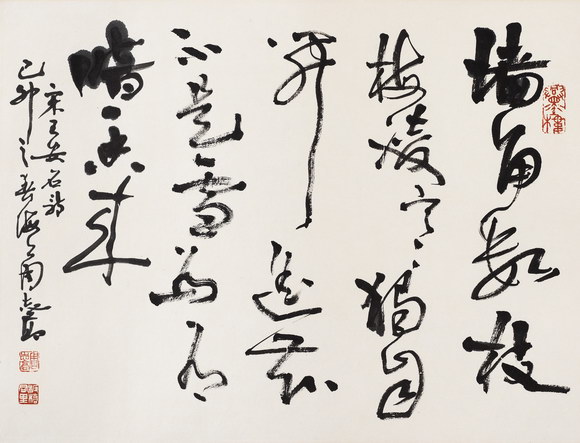 墙角数枝
梅凌寒獨自
开遥知
不是雪为有
暗香来
宋王安石诗
己卯之春海上周慧珺